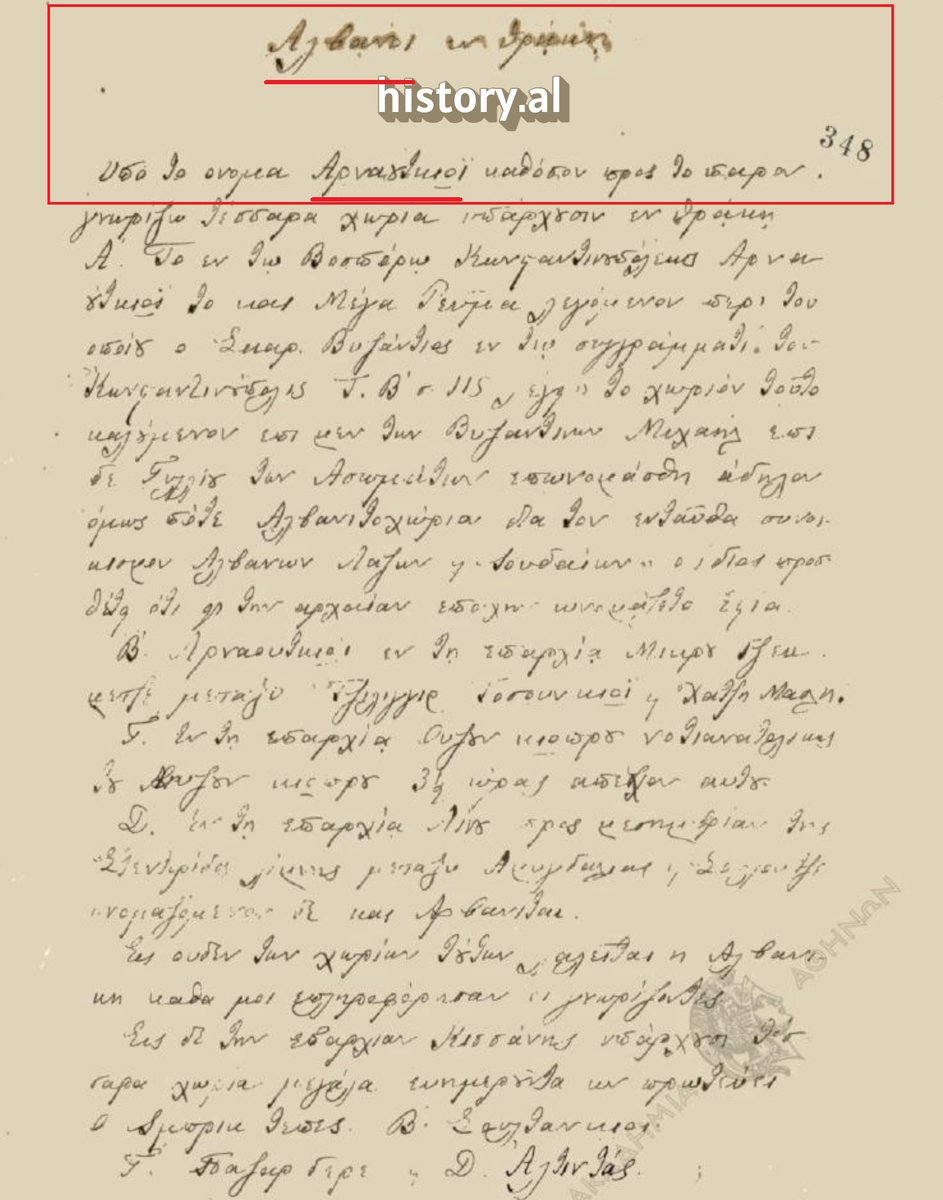 Αλβανοι εν Θράκη
history.al
348
Υπο το ονομα Αρναουτκιοϊ καθόσον προς το παρον
γνωριζω τεσσαρα χωρια υπάρχουσιν εν Θράκη
Α. Το εν τω Βοσπόρω Κωνσταντινουπόλεως Αρνα
ουτκιοϊ το και Μέγα Ρευμα λεγόμενον περι του
οποίου ο Σκαρ. Βυζάντιος εν τω συγγράμματι του
Κωνσταντινούπολις Τ. Β σ. 115 λέγει " το χωριόν τούτο
καλούμενον επι μεν των Βυζαντινων Μιχαήλ επι
δε Γυλλίου των Ασωμάτων επωνομάσθη άδηλον
όμως πότε Αλβανιτοχώριον δια τον ενταύθα συνοι
κισμον Αλβανων Λαζων και Ιουδαίων" ο ίδιος προσ
θέτει ότι την αρχαίαν εποχην ωνομάζετο Εστία.
Β. Αρναουτκιοι εν τη επαρχία Μικρου Τζεκ
μετζέ μεταξυ κιοϊ και Χατζη Μαλη.
Γ. Εν τη επαρχία Ουζουν κιοπρου νοτιανατολικως
του Ουζουν κιοπρου 3 ώρας απέχον αυτου
Δ. Εν τη επαρχία Αίνου προς μεσημβρίαν της
Στεντορίδος λίμνης μεταξυ Αμυγδαλιας και
ονομαζόμενον δε και Αρβανιται.
Εις ουδεν των χωρίων τούτων λαλείται η Αλβανι
κη καθα μοι επληροφόρησαν οι γνωρίζοντες
Εις δε την επαρχιαν Κισσάνης υπάρχουσι τέσ
σαρα χωρια μεγάλα ευημερουντα ων πρωτεύει
ο τεπες. Β. Σουλτανκιοι
Γ. Παζαρ δερε Δ. Αλτιντάς
ΑΚΑΔΗΜΙΑ ΑΘΗΝΩΝ